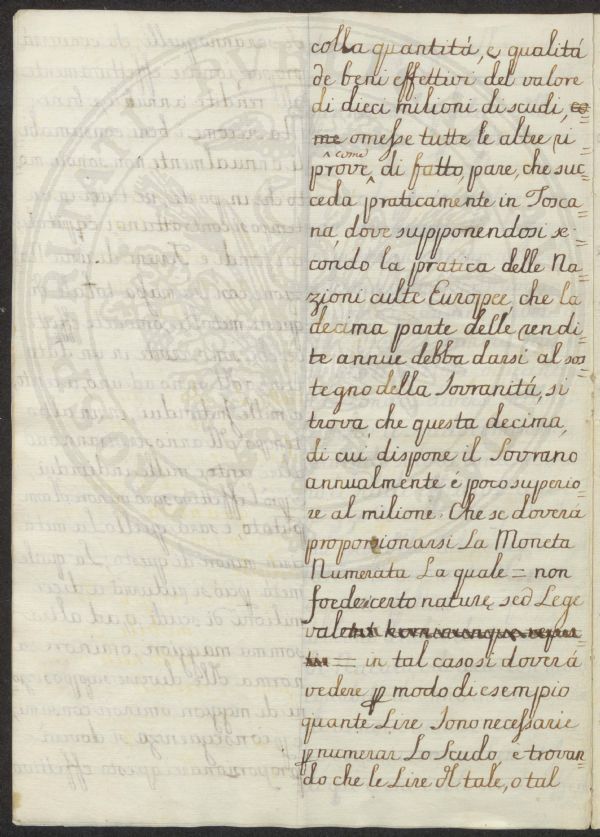 colla quantitá, e qualitá
de beni effettivi del valore
di dieci milioni di scudi, co
me omesse tutte le altre ri
prove come di fatto, pare, che suc=
ceda praticamente in Tosca=
na, dove supponendosi se=
condo la pratica delle Na=
zioni culte Europee che la
decima parte delle rendi=
te annue debba darsi al sos
tegno della Sovranitá, si
trova, che questa decima,
di cui dispone il Sovrano
annualmente é poco superio=
re al milione. Che se doverá
proporsionarsi La Moneta
Numerata La quale = non
foedere certo nature, sed Lege
valet
= in tal caso si doverá
vedere ꝑ modo di esempio
quante Lire Sono necessarie
ꝑ numerar Lo Scudo, e trovan=
do che le Lire di tale, o tal